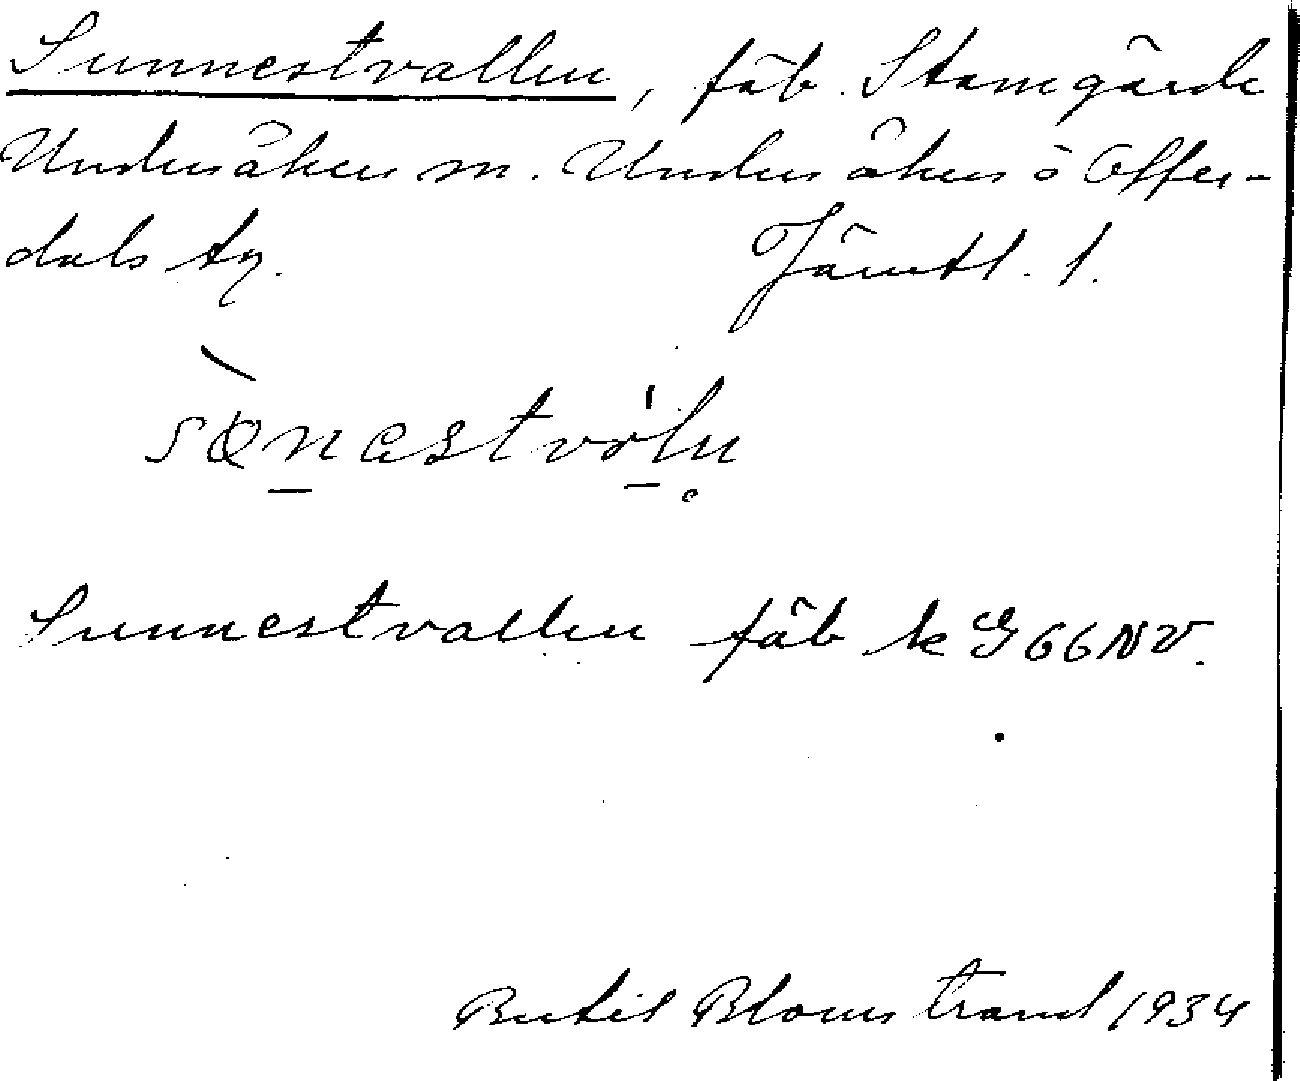 Sunnestvallen, fäb. Stamgärde
Undersåkers sn. Undersåkers o Offer-
dals tg. Jämtl. l.
Sunnestvallen fäb k G 66 NV.
Bertil Blomstrand 1934